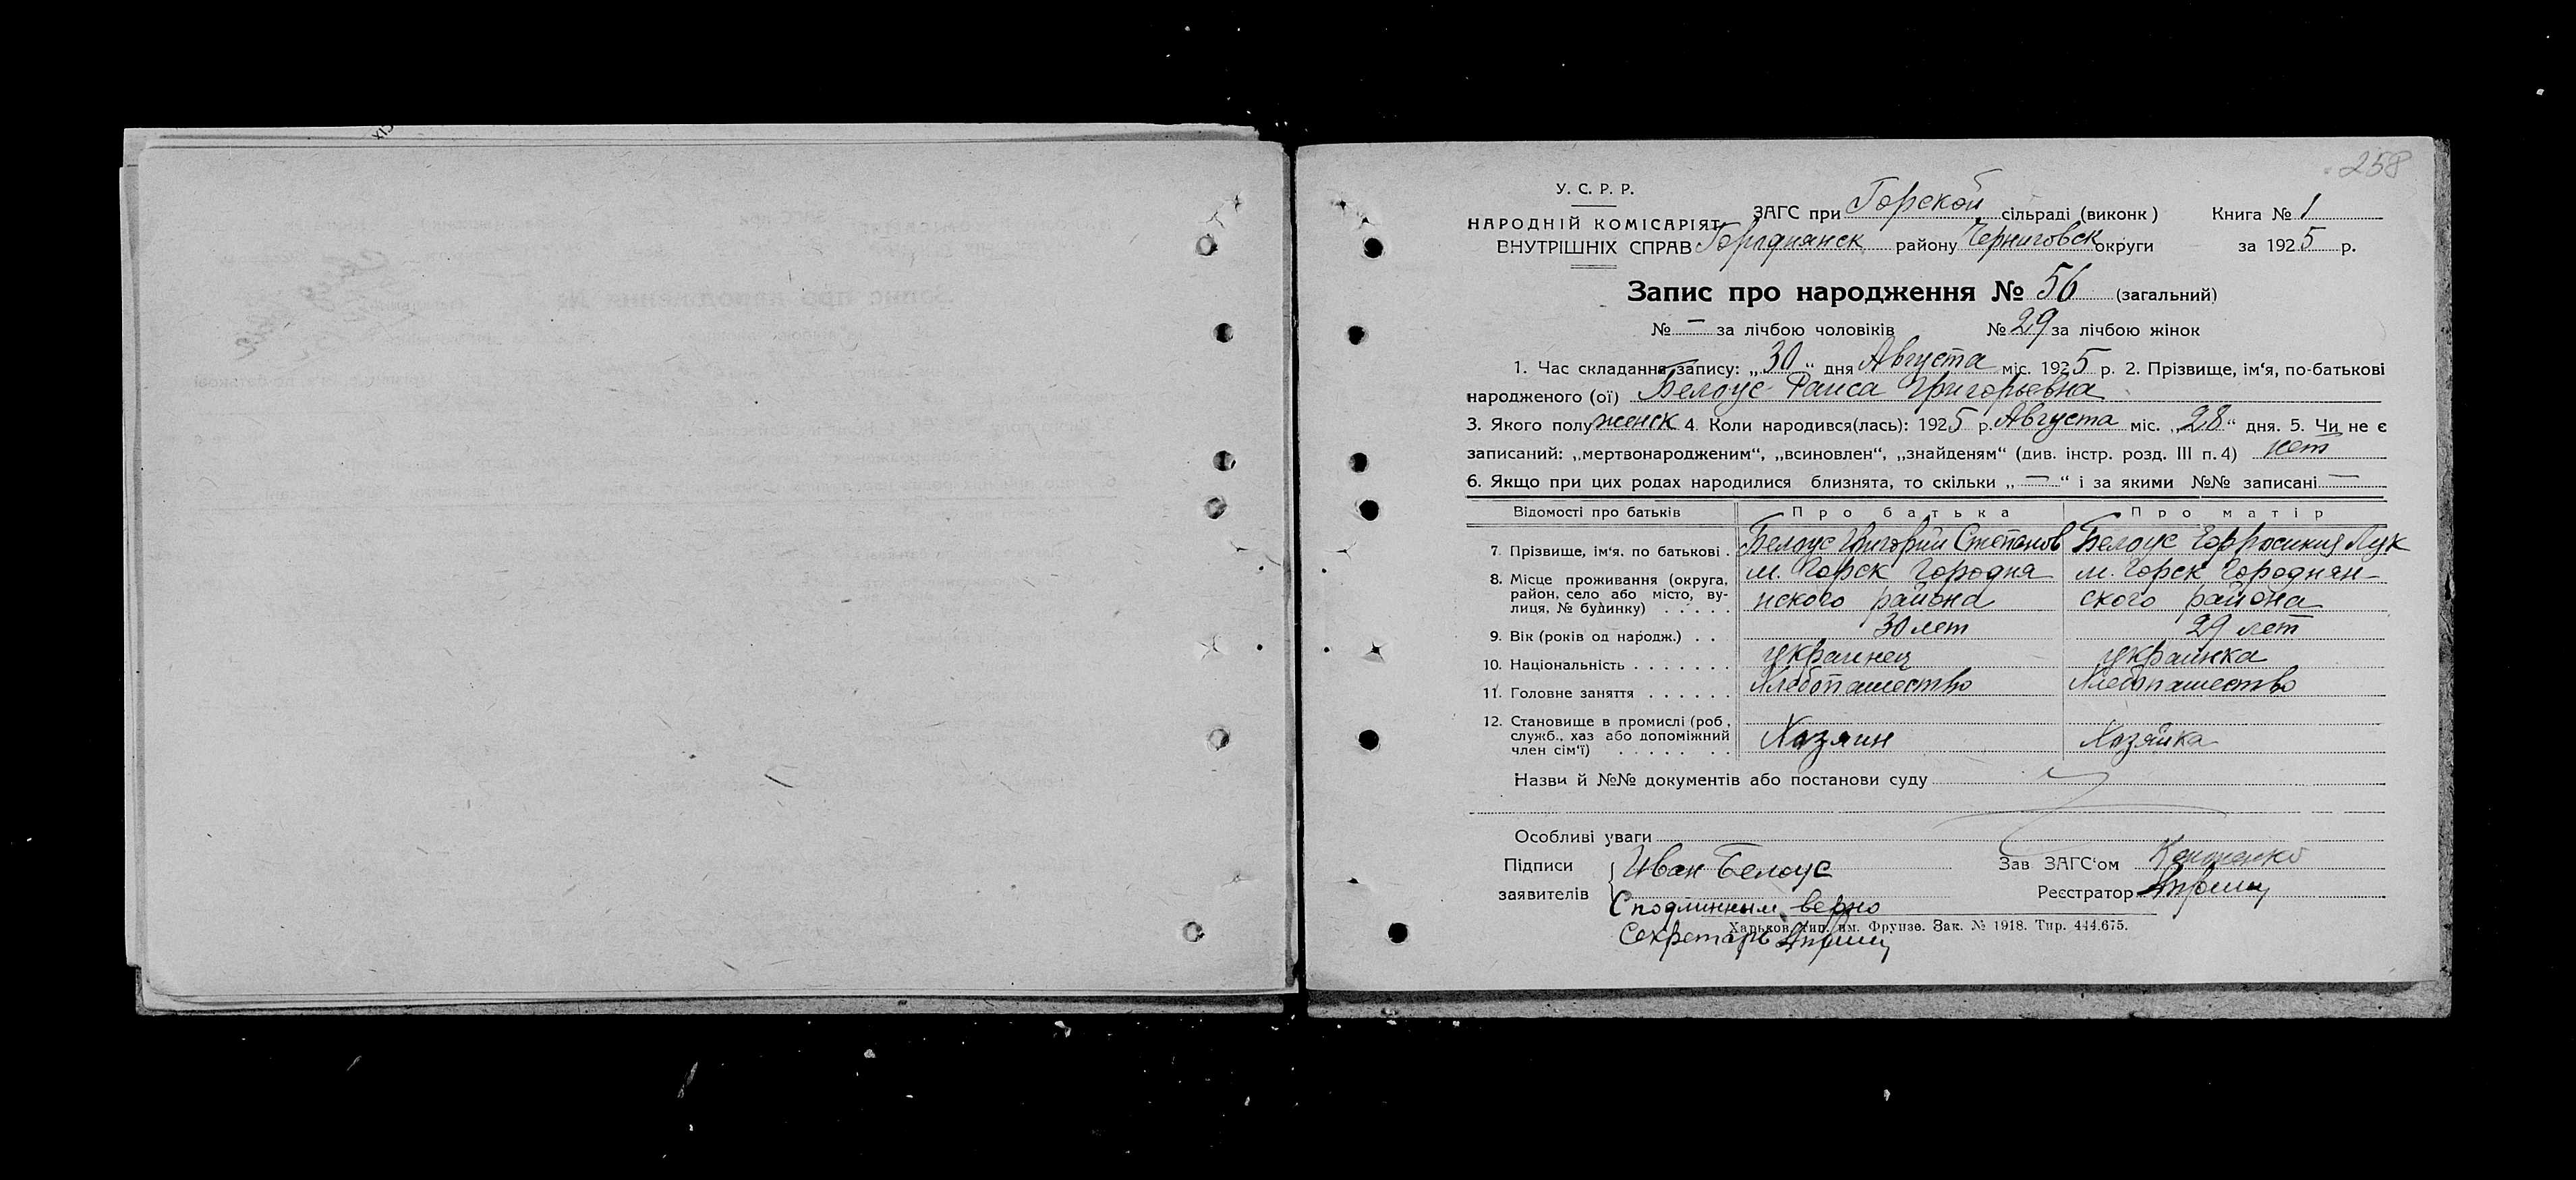 258
У. С. Р. Р.
НАРОДНІЙ КОМІСАРІЯТ
ВНУТРІШНІХ СПРАВ
ЗАГС при Горской сільраді (виконк) Книга № 1
Городнянск району Черниговск округи за 1925 р.
Запис про народження № 56 (загальний)
№ — за лічбою чоловіків № 29 за лічбою жінок
1. Час складання запису: „30“ дня Августа міс. 1925 р. 2. Прізвище, ім‘я, по-батькові
народженого (ої) Белоус Раиса Григорьевна
3. Якого полу женск 4. Коли народився(лась): 1925 р. Августа міс. „28“ дня. 5. Чи не є
записаний: „мертвонародженим“, „всиновлен“, „знайденям“ (див. інстр. розд. III п. 4) нет
6. Якщо при цих родах народилися близнята, то скільки „—“ і за якими №№ записані —
Відомості про батьків Про батька Про матір
7. Прізвище, ім‘я. по батькові . Белоус Григорий Степанов Белоус Ефросиния Лук
8. Місце проживання (округа, район, село або місто, вулиця, № будинку) . . . . . м. Горск Городня м. Горск Городнян-
нского района ского района
9. Вік (років од народж.) . . 30 лет 29 лет
10. Національність . . . . . . . украинец украинка
11. Головне заняття . . . . . . Хлебопашество Хлебопашество
12. Становище в промислі (роб., служб., хаз або допоміжний член сім‘ї) . . . . . . . Хозяин Хозяйка
Назви й №№ документів або постанови суду
Особливі уваги
Підписи Иван Белоус Зав ЗАГС‘ом
заявителів Реєстратор
С подлинным верно
Харьков, тип. им. Фрунзе. Зак. № 1918. Тир. 444.675.
Секретарь